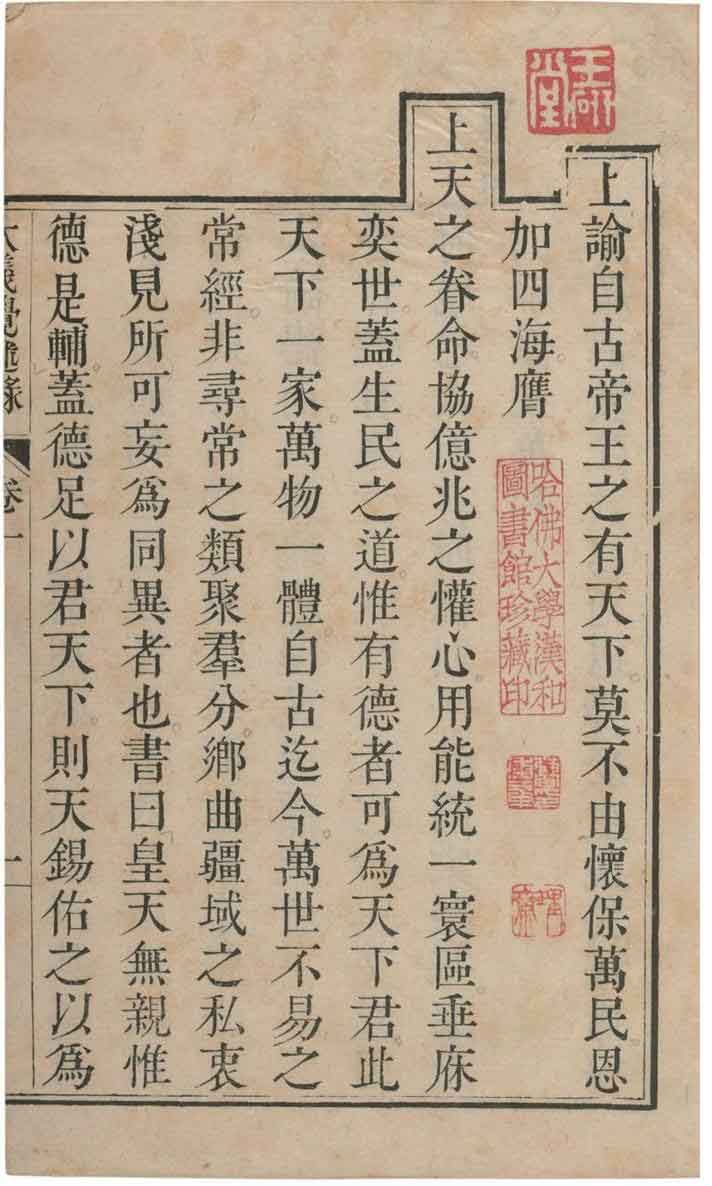 上諭自古帝王之有天下莫不由懷保萬民恩
加四海膺
上天之眷命協億兆之懽心用能統一寰區垂庥
奕世蓋生民之道惟有德者可為天下君此
天下一家萬物一體自古迄今萬世不易之
常經非尋常之類聚羣分鄉曲疆域之私衷
淺見所可妄為同異者也書曰皇天無親惟
德是輔蓋德足以君天下則天錫佑之以為
大義覺迷錄 卷一 一
哈佛大學漢和
圖書館珍藏印